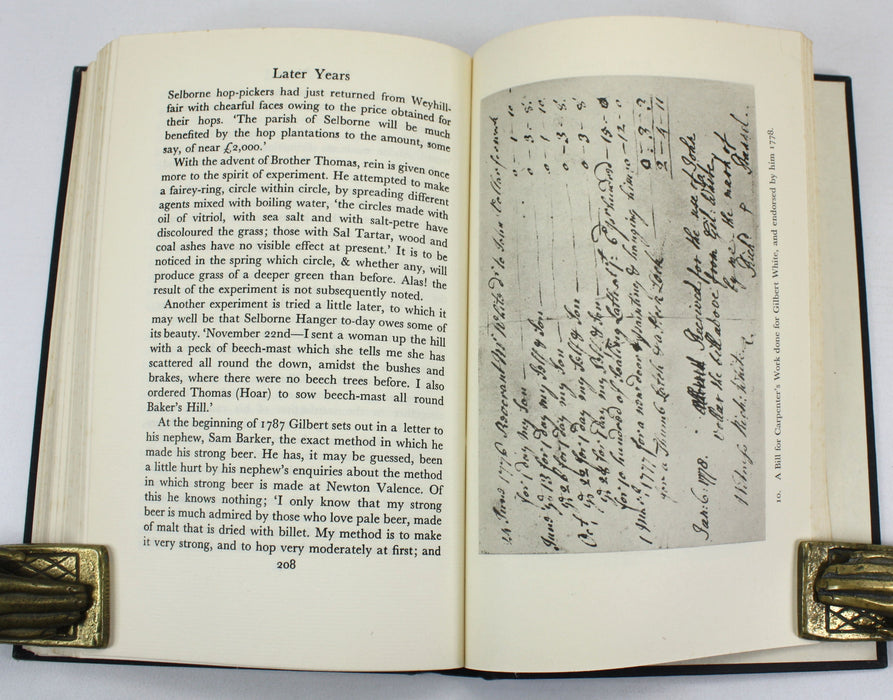 Later Years
Selborne hop-pickers had just returned from Weyhill-
fair with chearful faces owing to the price obtained for
their hops. 'The parish of Selborne will be much
benefited by the hop plantations to the amount, some
say, of near £2,000.'
With the advent of Brother Thomas, rein is given once
more to the spirit of experiment. He attempted to make
a fairey-ring, circle within circle, by spreading different
agents mixed with boiling water, 'the circles made with
oil of vitriol, with sea salt and with salt-petre have
discoloured the grass; those with Sal Tartar, wood and
coal ashes have no visible effect at present.' It is to be
noticed in the spring which circle, & whether any, will
produce grass of a deeper green than before. Alas! the
result of the experiment is not subsequently noted.
Another experiment is tried a little later, to which it
may well be that Selborne Hanger to-day owes some of
its beauty. 'November 22nd—I sent a woman up the hill
with a peck of beech-mast which she tells me she has
scattered all round the down, amidst the bushes and
brakes, where there were no beech trees before. I also
ordered Thomas (Hoar) to sow beech-mast all round
Baker's Hill.'
At the beginning of 1787 Gilbert sets out in a letter to
his nephew, Sam Barker, the exact method in which he
made his strong beer. He has, it may be guessed, been
a little hurt by his nephew's enquiries about the method
in which strong beer is made at Newton Valence. Of
this he knows nothing; 'I only know that my strong
beer is much admired by those who love pale beer, made
of malt that is dried with billet. My method is to make
it very strong, and to hop very moderately at first; and
208
1776
for 1 day my Son 0 - 1 - 10
for 1 day my self & Son 0 - 3 - 8
for 1 day my Son 0 - 1 - 10
for 1 day my self & Son 0 - 3 - 8
for 1 day my self & Son 0 - 3 - 8
for 10 hundred of 15 - 0
1777 for a new door & hanging him 0 - 12 - 0
for a Thumb Latch 0 - 3 - 3
2 - 4 - 11
Jan: 6: 1778. Received for the use of
the bill above from Gil: White
by me the mark of
Rich'd Russel
Witness
10. A Bill for Carpenter's Work done for Gilbert White, and endorsed by him 1778.